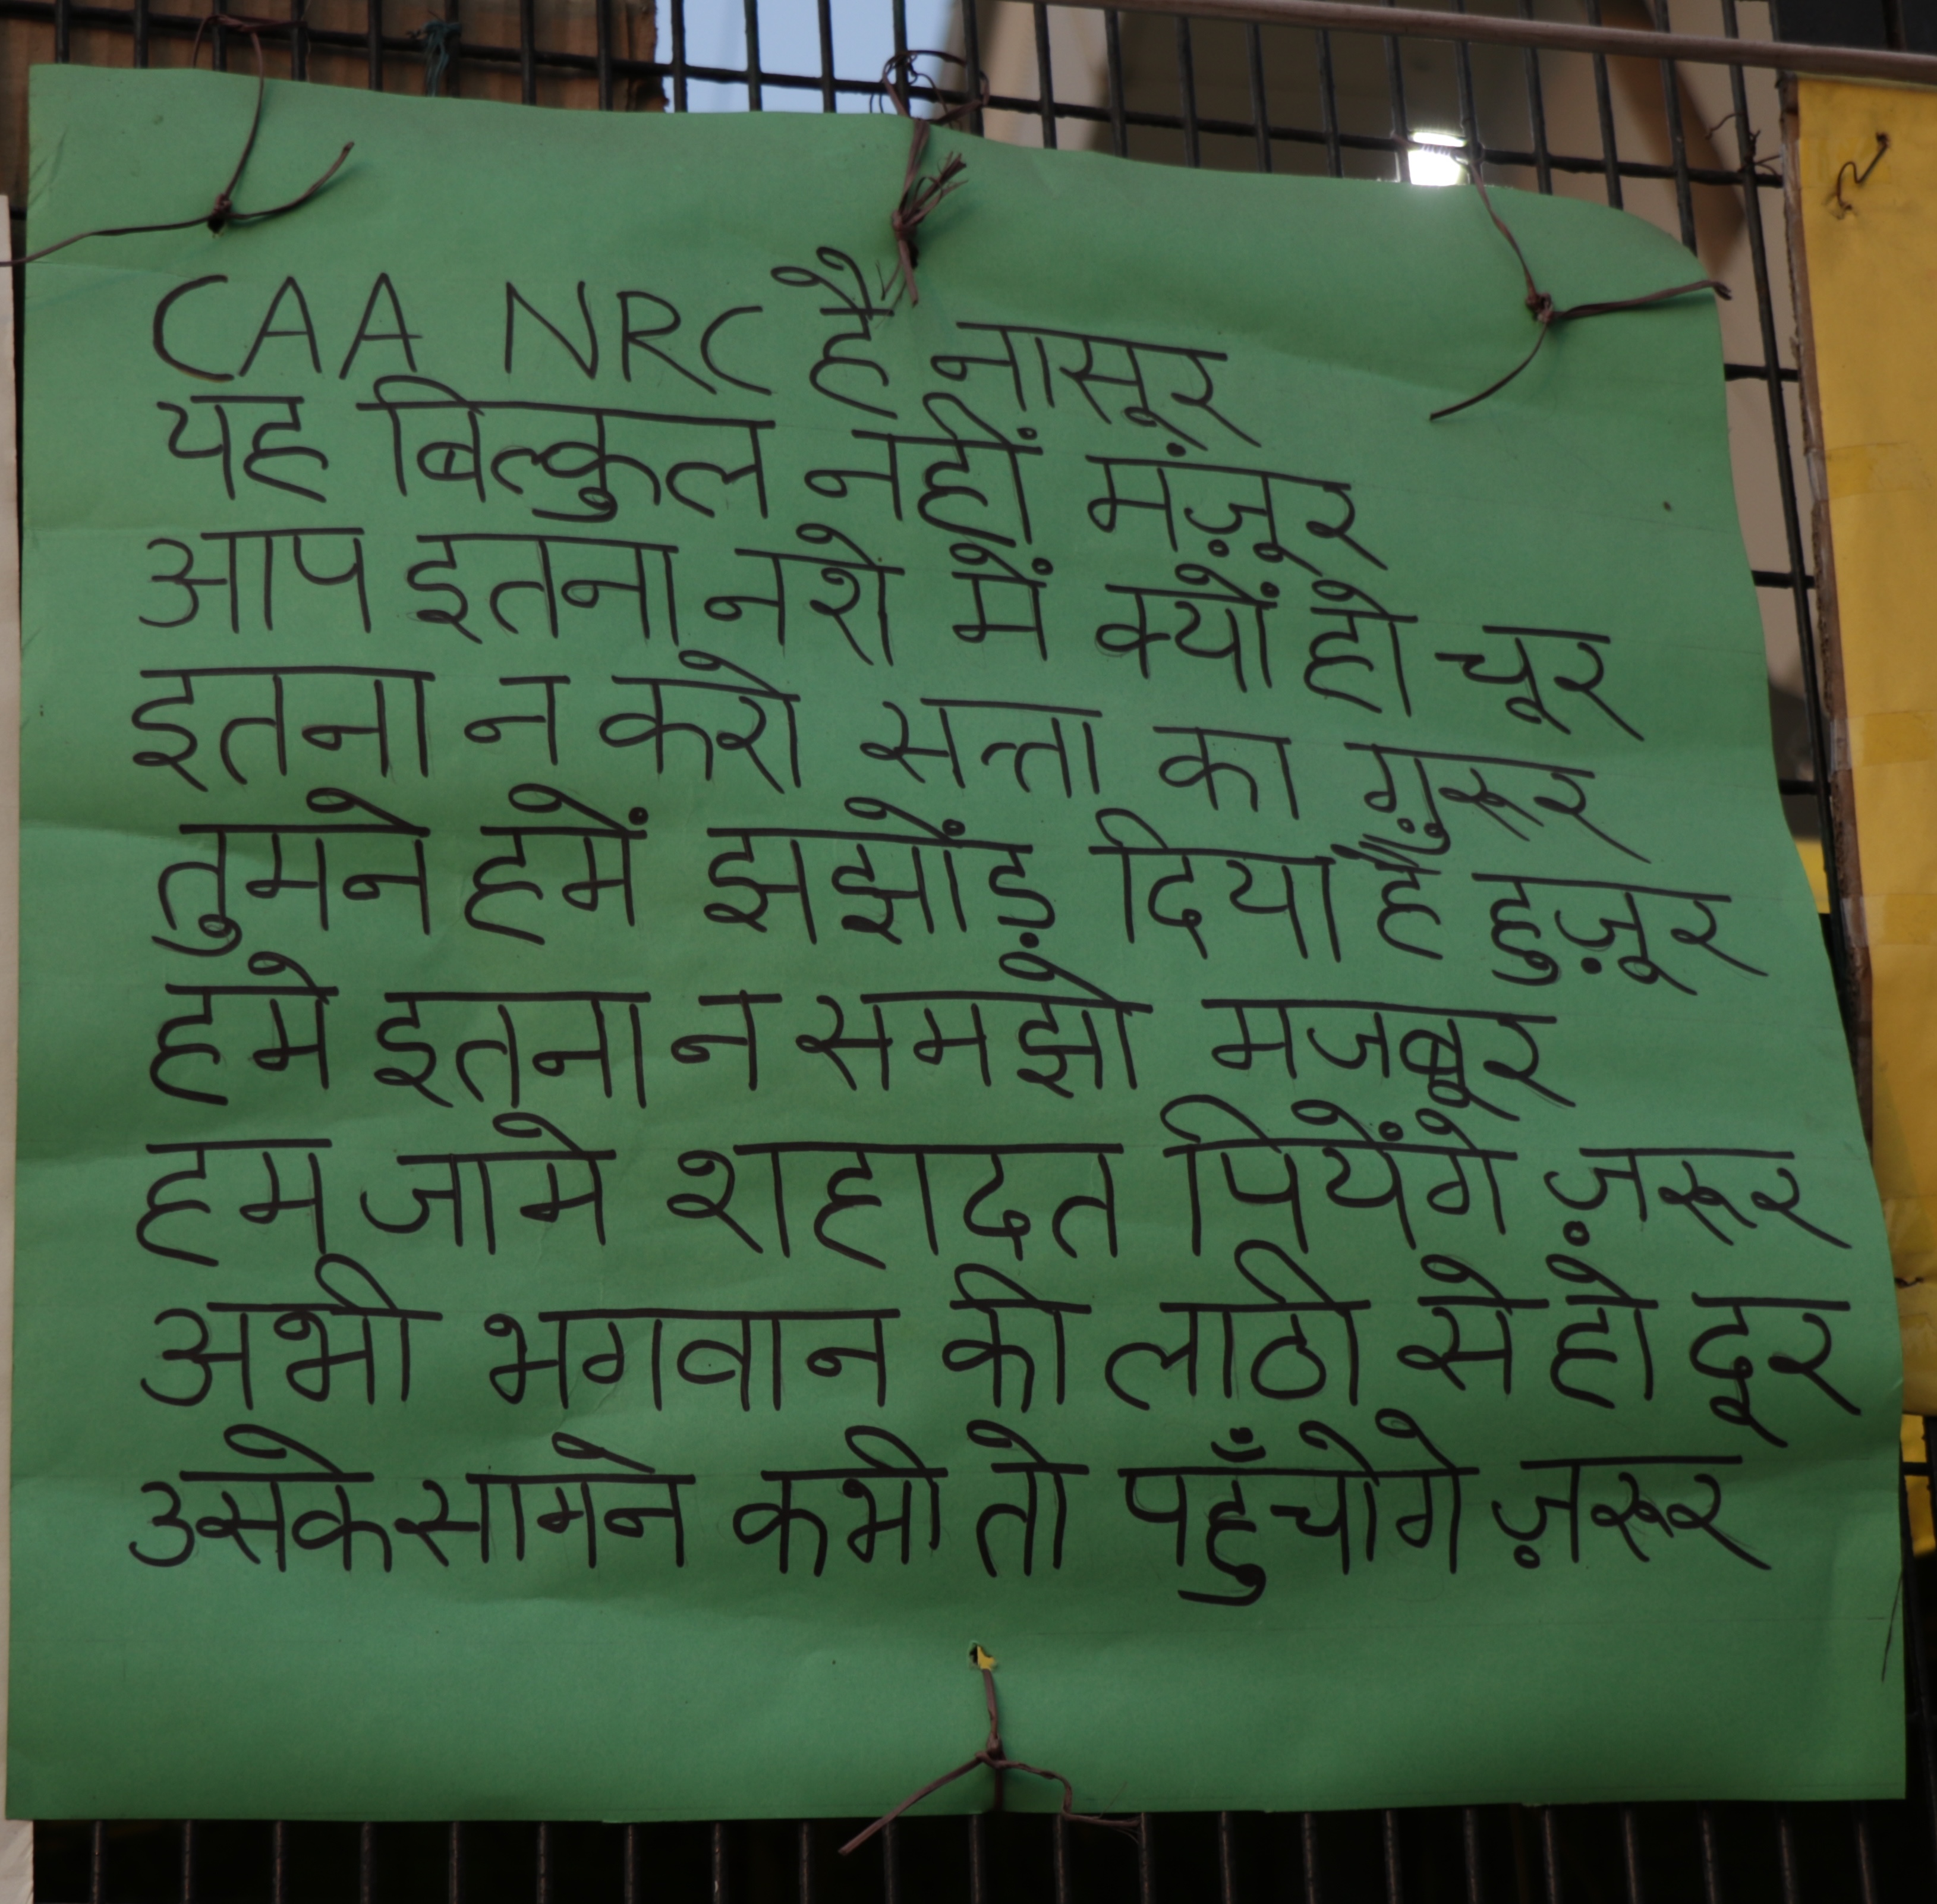 CAA NRC है नासूर
यह बिल्कुल नहीं मंज़ूर
आप इतना नशे में क्यों हो चूर
इतना न करो सत्ता का ग़ुरूर
तुमने हमें झझोंड़ दिया है हुज़ूर
हमे इतना न समझो मजबूर
हम जामे शहादत पियेंगे ज़रूर
अभी भगवान की लाठी से हो दूर
उसके सामने कभी तो पहुँचोगे ज़रूर